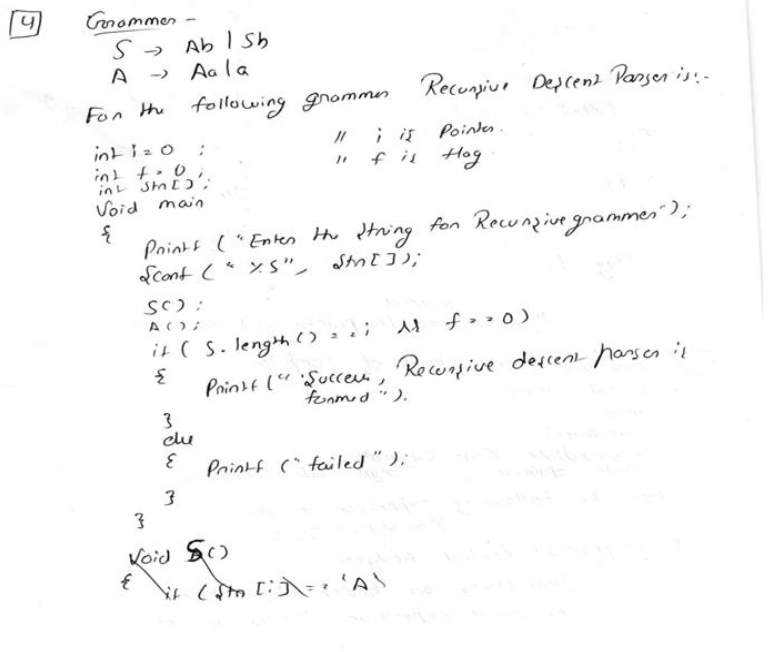 4 Grammer -
S → Ab | Sb
A → Aa | a
For the following grammer Recursive Descent Parser is:-
int i = 0 ; // i is Pointer.
int f = 0 ; // f is flag
int Str[];
Void main
{
Printf ("Enter the String for Recursive grammer");
Scanf ("%S", Str[]);
S();
A();
if ( S.length() == i && f == 0)
{
Printf (" Success, Recursive descent parser is
formed ");
}
else
{ Printf ("failed");
}
}
Void S()
{ if (Str [i] == 'A'